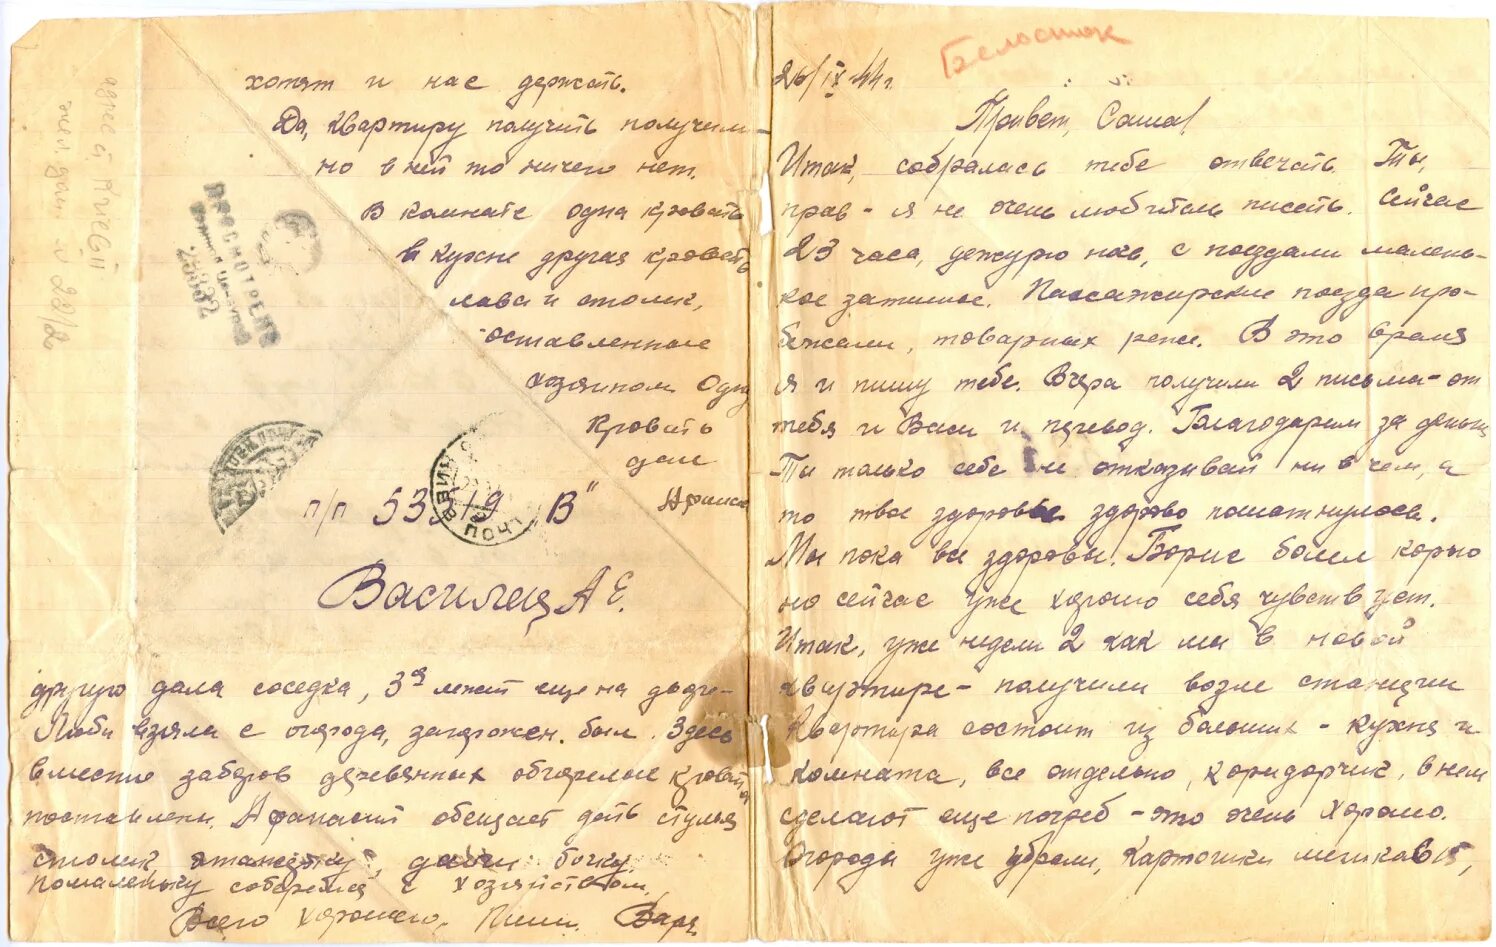 Белосток
26/IX 44 г.
Привет, Саша!
Итак, собралась тебе отвечать. Ты,
прав - я не очень любитель писать. Сейчас
23 часа, дежурю, с поездами малень-
кое затишье. Пассажирские поезда про-
бежали, товарных реже. В это время
я и пишу тебе. Вчера получили 2 письма - от
тебя и Васи и перевод. Благодарим за деньги
Ты только себе не отказывай ни в чем, а
то твое здоровье здорово пошатнулось.
Мы пока все здоровы. Борис болел корью
но сейчас уже хорошо себя чувствует.
Итак, уже недели 2 как мы в новой
квартире - получили возле станции
Квартира состоит из больших - кухня и
комната, все отдельно, коридорчик, в нем
сделают еще погреб - это очень хорошо.
Огороды уже убрали, картошки мешков 15,
хотят и нас держать.
Да, квартиру получить получили
но в ней то ничего нет.
В комнате одна кровать
в кухне другая кровать
лава и столик,
оставленные
хозяином Одну
кровать
дал
п/п "В"
Василец А Е.
другую дала соседка, 3я лежит еще на дворе
взяли с огорода, загорожен. был. Здесь
вместо заборов деревянных обгорелые кровати
поставлены. Афанасий обещает дать стулья
столик, этажерку, дали бочку.
помаленьку соберемся с хозяйством.
Всего хорошего. Пиши. Варя
ПРОСМОТРЕНО